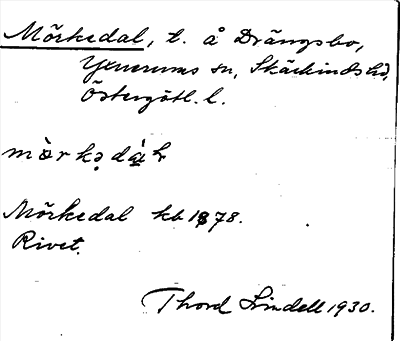 Mörkedal, t. å Drängsbo,
Yxnerums sn, Skärkinds hd,
Östergötl. l.
mö̀rkədál
Mörkedal kb 1878.
Rivet.
Thord Lindell 1930.